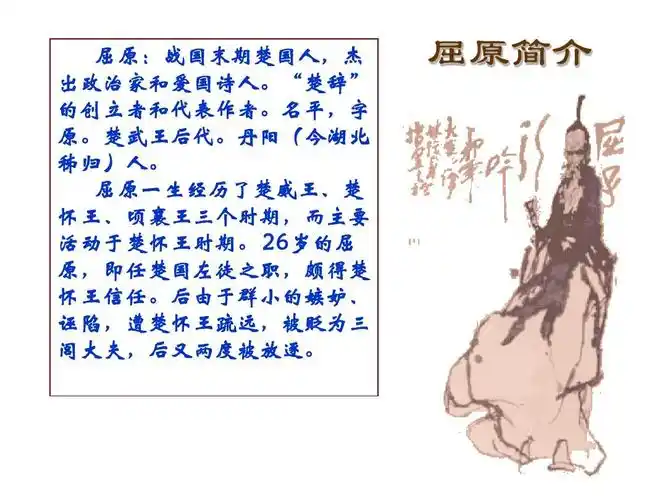 屈原简介
屈原：战国末期楚国人，杰
出政治家和爱国诗人。“楚辞”
的创立者和代表作者。名平，字
原。楚武王后代。丹阳（今湖北
秭归）人。
屈原一生经历了楚威王、楚
怀王、顷襄王三个时期，而主要
活动于楚怀王时期。26岁的屈
原，即任楚国左徒之职，颇得楚
怀王信任。后由于群小的嫉妒、
诬陷，遭楚怀王疏远，被贬为三
闾大夫，后又两度被放逐。
屈子
行
吟